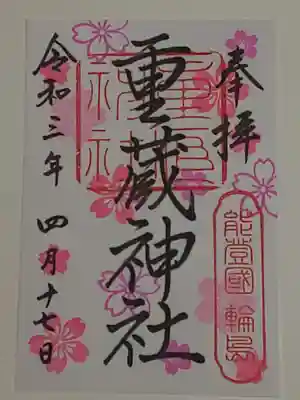 奉拝
能登國輪島
重蔵神社
令和三年 四月十七日